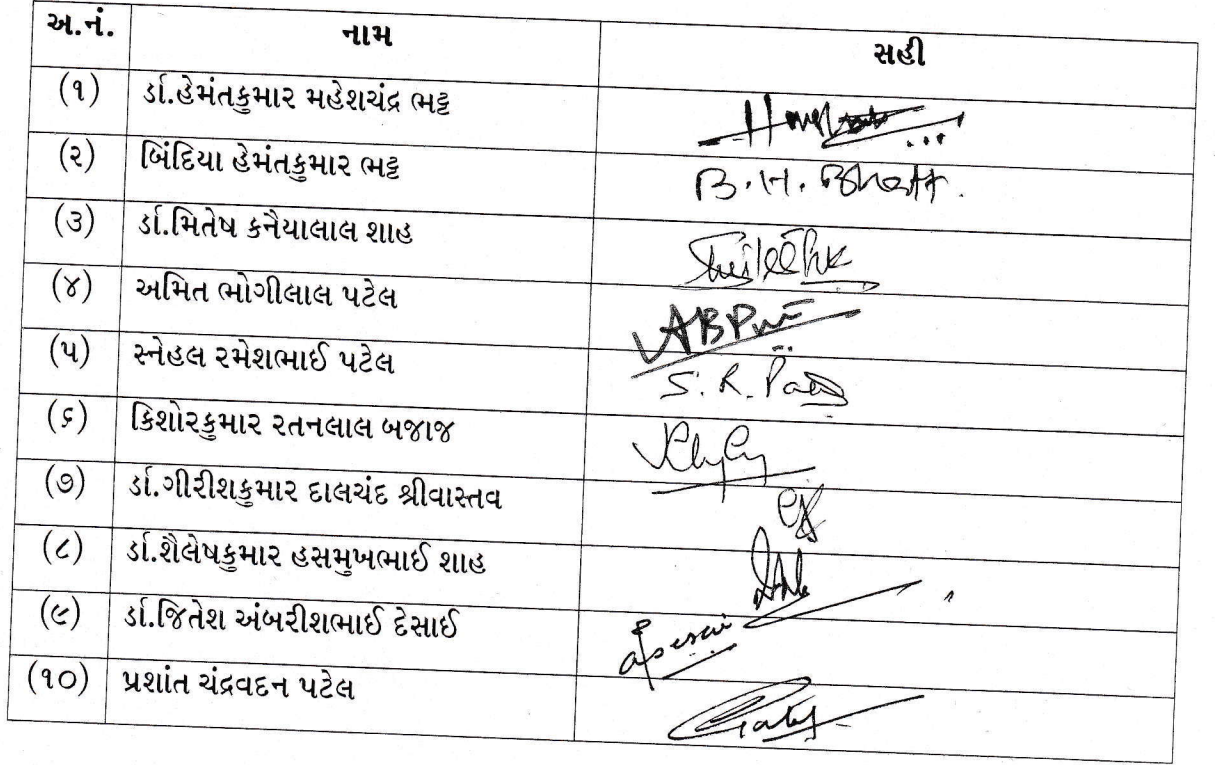 અ.નં. નામ સહી
(૧) ર્ડા.હેમંતકુમાર મહેશચંદ્ર ભટ્ટ
(૨) બિંદિયા હેમંતકુમાર ભટ્ટ B.H. Bhatt.
(૩) ર્ડા.મિતેષ કનૈયાલાલ શાહ
(૪) અમિત ભોગીલાલ પટેલ
(૫) સ્નેહલ રમેશભાઈ પટેલ S. R.
(૬) કિશોરકુમાર રતનલાલ બજાજ
(૭) ર્ડા.ગીરીશકુમાર દાલચંદ શ્રીવાસ્તવ
(૮) ર્ડા.શૈલેષકુમાર હસમુખભાઈ શાહ
(૯) ર્ડા.જિતેશ અંબરીશભાઈ દેસાઈ
(૧૦) પ્રશાંત ચંદ્રવદન પટેલ